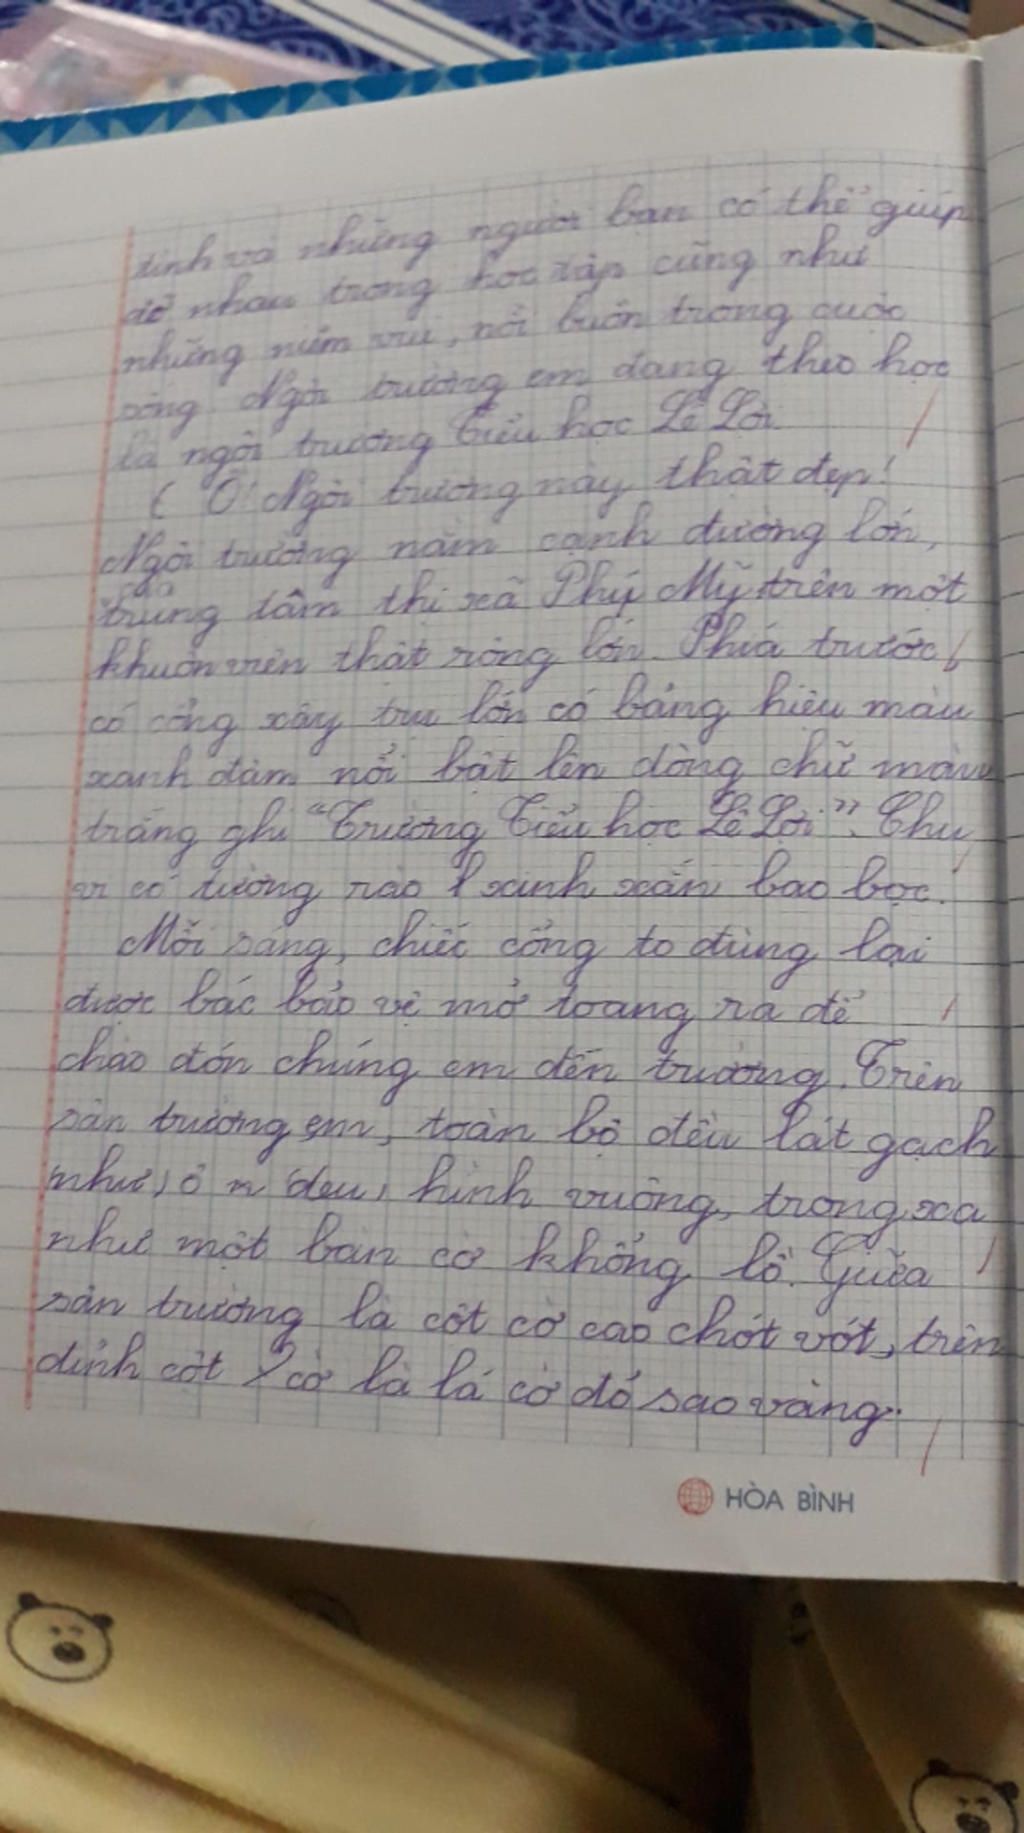 tình và những người bạn có thể giúp
đỡ nhau trong học tập cũng như
những niềm vui, nỗi buồn trong cuộc
sống. Ngôi trường em đang theo học
là ngôi trường Tiểu học Lê Lợi
( Ô! Ngôi trường này thật đẹp!
Ngôi trường nằm cạnh đường lớn,
trung tâm thị xã Phú Mỹ trên một
khuôn viên thật rộng lớn. Phía trước
có cổng xây trụ lớn có bảng hiệu màu
xanh đậm nổi bật lên dòng chữ màu
trắng ghi "Trường Tiểu học Lê Lợi". Chu
vi có tường rào xinh xắn bao bọc.
Mỗi sáng, chiếc cổng to đùng lại
được bác bảo vệ mở toang ra để
chào đón chúng em đến trường. Trên
sân trường em, toàn bộ đều lát gạch
như hình vuông, trong xa
như một bàn cờ khổng lồ. Giữa
sân trường là cột cờ cao chót vót, trên
đỉnh cột cờ là lá cờ đỏ sao vàng.
HÒA BÌNH